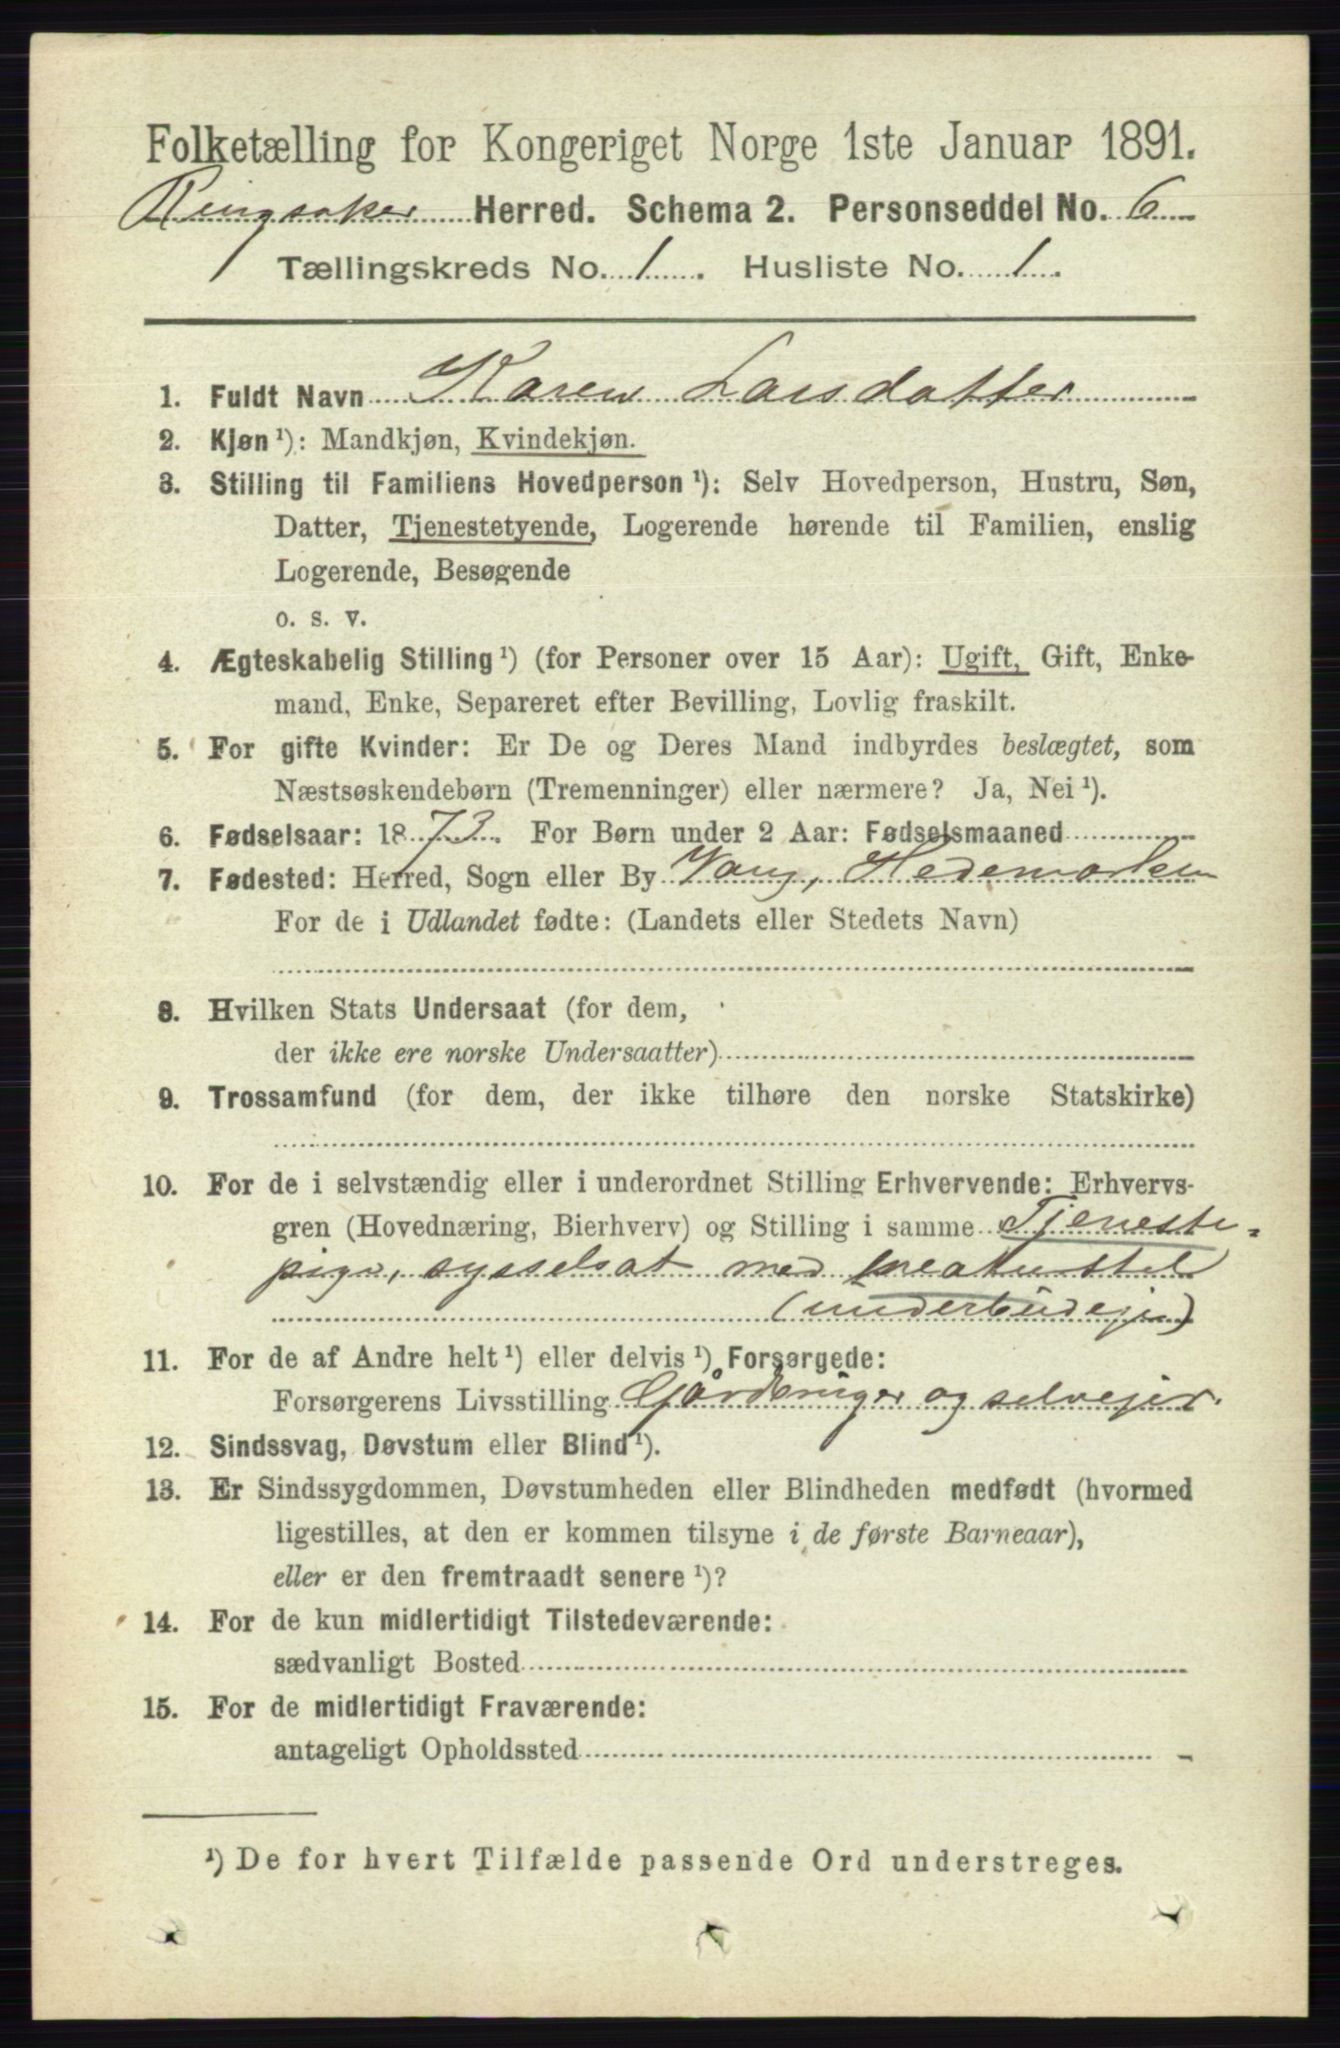 Folketælling for Kongeriget Norge 1ste Januar 1891.
Ringsaker Herred. Schema 2. Personseddel No. 6
Tællingskreds No. 1. Husliste No. 1.
1. Fuldt Navn Karen Larsdatter
2. Kjøn ¹): Mandkjøn, Kvindekjøn.
3. Stilling til Familiens Hovedperson ¹): Selv Hovedperson, Hustru, Søn,
Datter, Tjenestetyende, Logerende hørende til Familien, enslig
Logerende, Besøgende
o. s. v.
4. Ægteskabelig Stilling ¹) (for Personer over 15 Aar): Ugift, Gift, Enke-
mand, Enke, Separeret efter Bevilling, Lovlig fraskilt.
5. For gifte Kvinder: Er De og Deres Mand indbyrdes beslægtet, som
Næstsøskendebørn (Tremenninger) eller nærmere? Ja, Nei ¹).
6. Fødselsaar: 1873. For Børn under 2 Aar: Fødselsmaaned
7. Fødested: Herred, Sogn eller By Vang, Hedemarken
For de i Udlandet fødte: (Landets eller Stedets Navn)
8. Hvilken Stats Undersaat (for dem,
der ikke ere norske Undersaatter)
9. Trossamfund (for dem, der ikke tilhøre den norske Statskirke)
10. For de i selvstændig eller i underordnet Stilling Erhvervende: Erhvervs-
gren (Hovednæring, Bierhverv) og Stilling i samme Tjeneste-
pige, sysselsat med kreaturstel
(underbudeje)
11. For de af Andre helt ¹) eller delvis ¹) Forsørgede:
Forsørgerens Livsstilling Gårdbruger og selvejer.
12. Sindssvag, Døvstum eller Blind ¹).
13. Er Sindssygdommen, Døvstumheden eller Blindheden medfødt (hvormed
ligestilles, at den er kommen tilsyne i de første Barneaar),
eller er den fremtraadt senere ¹)?
14. For de kun midlertidigt Tilstedeværende:
sædvanligt Bosted
15. For de midlertidigt Fraværende:
antageligt Opholdssted
¹) De for hvert Tilfælde passende Ord understreges.